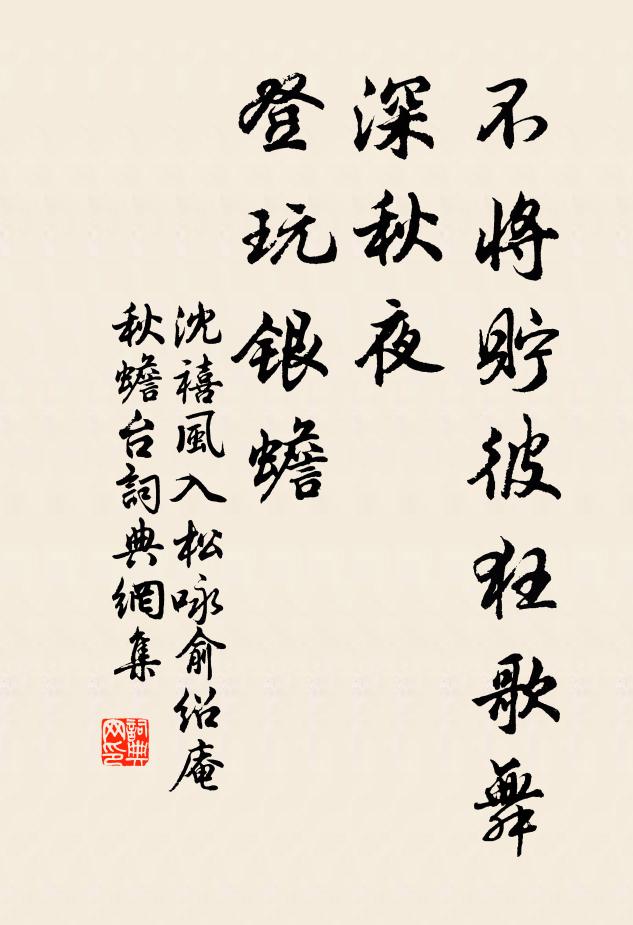 不將貯彼狂歌舞
深秋夜
登玩銀蟾
沈禧風入松咏俞紹庵
秋蟾台詞典網集
詞典網印